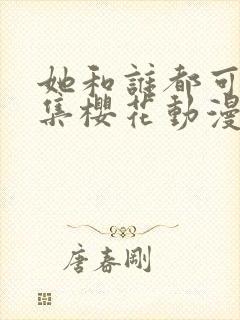 她和誰都可
集櫻花動漫
唐春剛